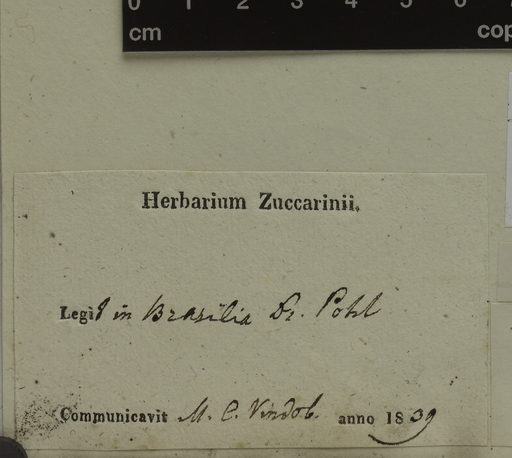 0 1 2 3 4 5 6
cm cop
Herbarium Zuccarinii.
Legit in Brasilia Dr. Pohl
Communicavit M. C. Vindob. anno 1839